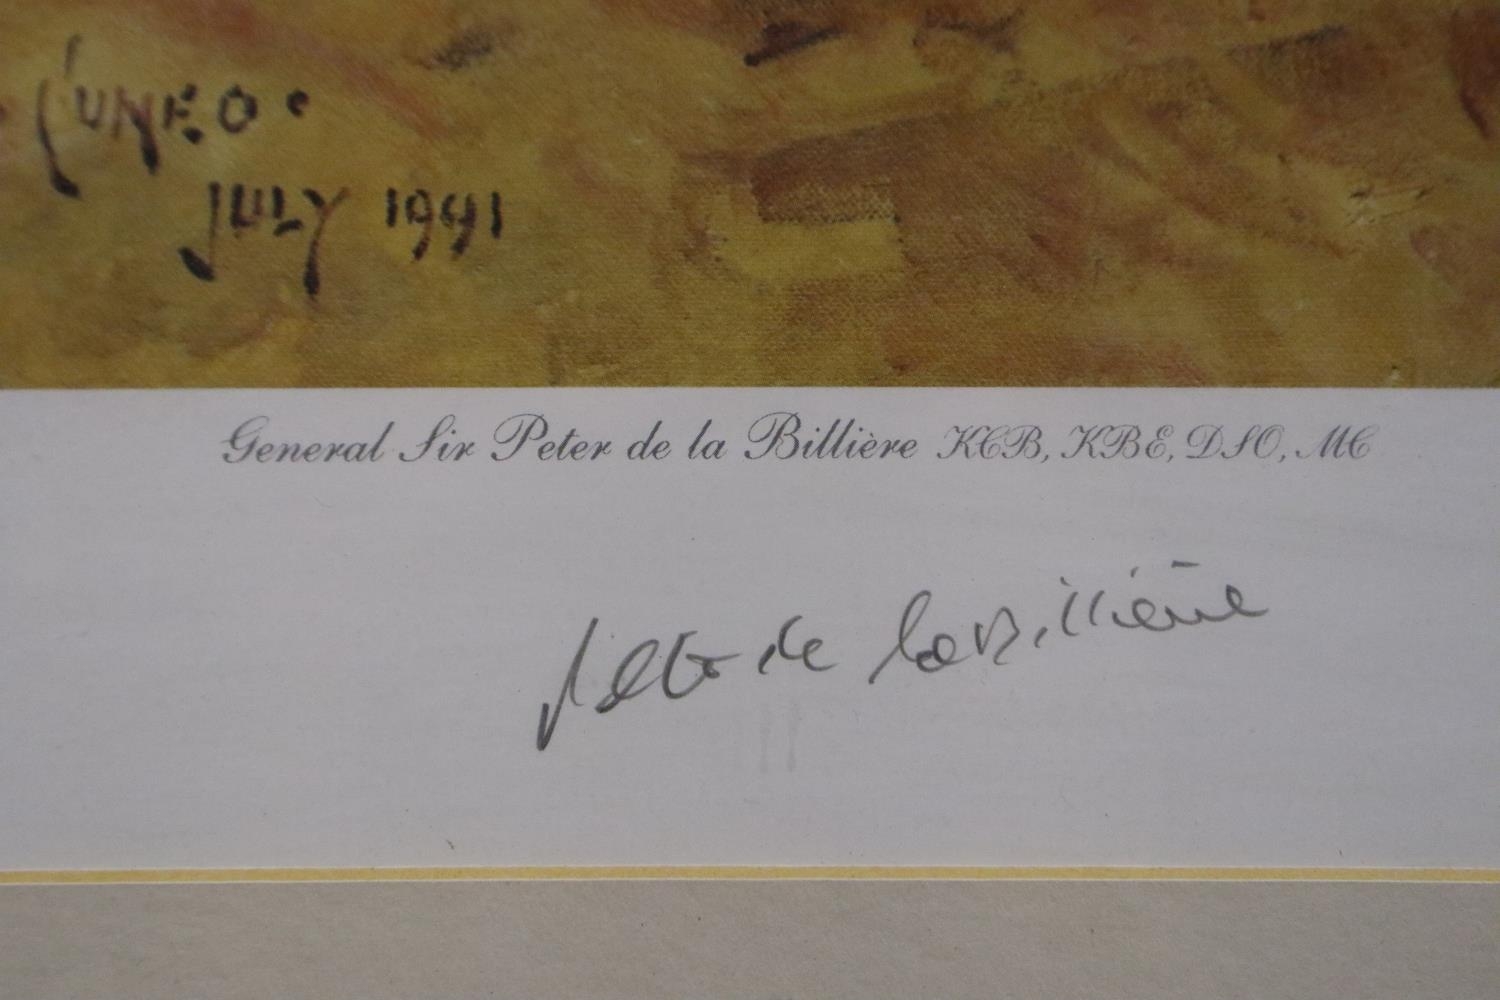 • CUNEO •
JULY 1991
General Sir Peter de la Billière KCB, KBE, DSO, MC
Peter de la Billière